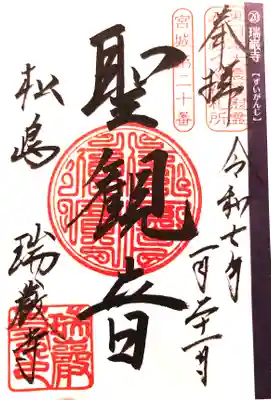 ⑳ 瑞巌寺【ずいがんじ】
奉拝
宮城第二十番
令和七年
一月二十一日
聖観音
松島
瑞巌寺